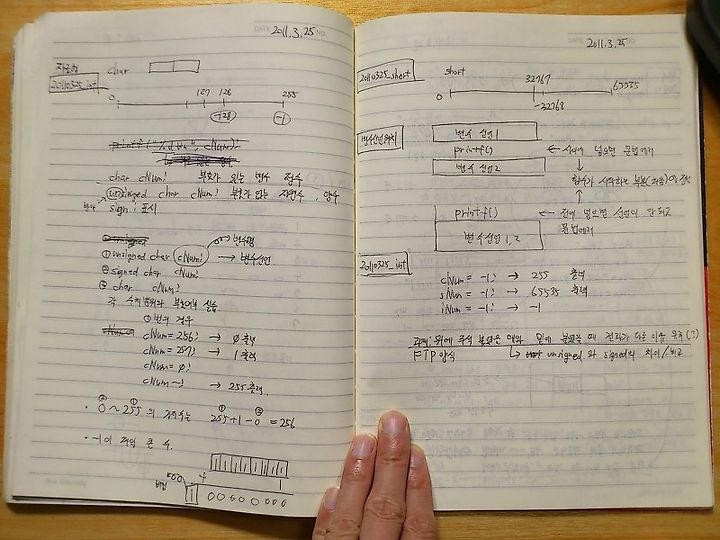 2011.3.25
자료형 char
20110325_int
0 127 128 255
-128 -1
printf("%d\n", cNum);
char cNum; 부호가 있는 변수 정수
unsigned char cNum; 부호가 없는 자연수, 양수
sign : 표시
① unsigned char cNum; → 변수선언
변수명
② signed char cNum;
③ char cNum;
각 수치범위와 부호여부 실습
①번의 경우
cNum = 256; → 0 출력
cNum = 257; → 1 출력
cNum = 0;
cNum -1; → 255 출력.
· 0 ~ 255 의 가지수는 255+1-0 = 256
· -1이 가장 큰 수.
+
00000000
2011.3.25
20110325_short
short
0 32767 65535
-32768
변수선언위치
변수 선언 1
printf() ← 사이에 넣으면 문법에러
변수 선언 2
함수가 시작하는 부분(처음)에 선언
printf() ← 전에 넣으면 선언이 안 되고
변수선언 1, 2 문법에러
20110325_int
cNum = -1; → 255 출력
sNum = -1; → 65535 출력
iNum = -1; → -1
PTP 양식 → unsigned 와 signed의 차이/비교